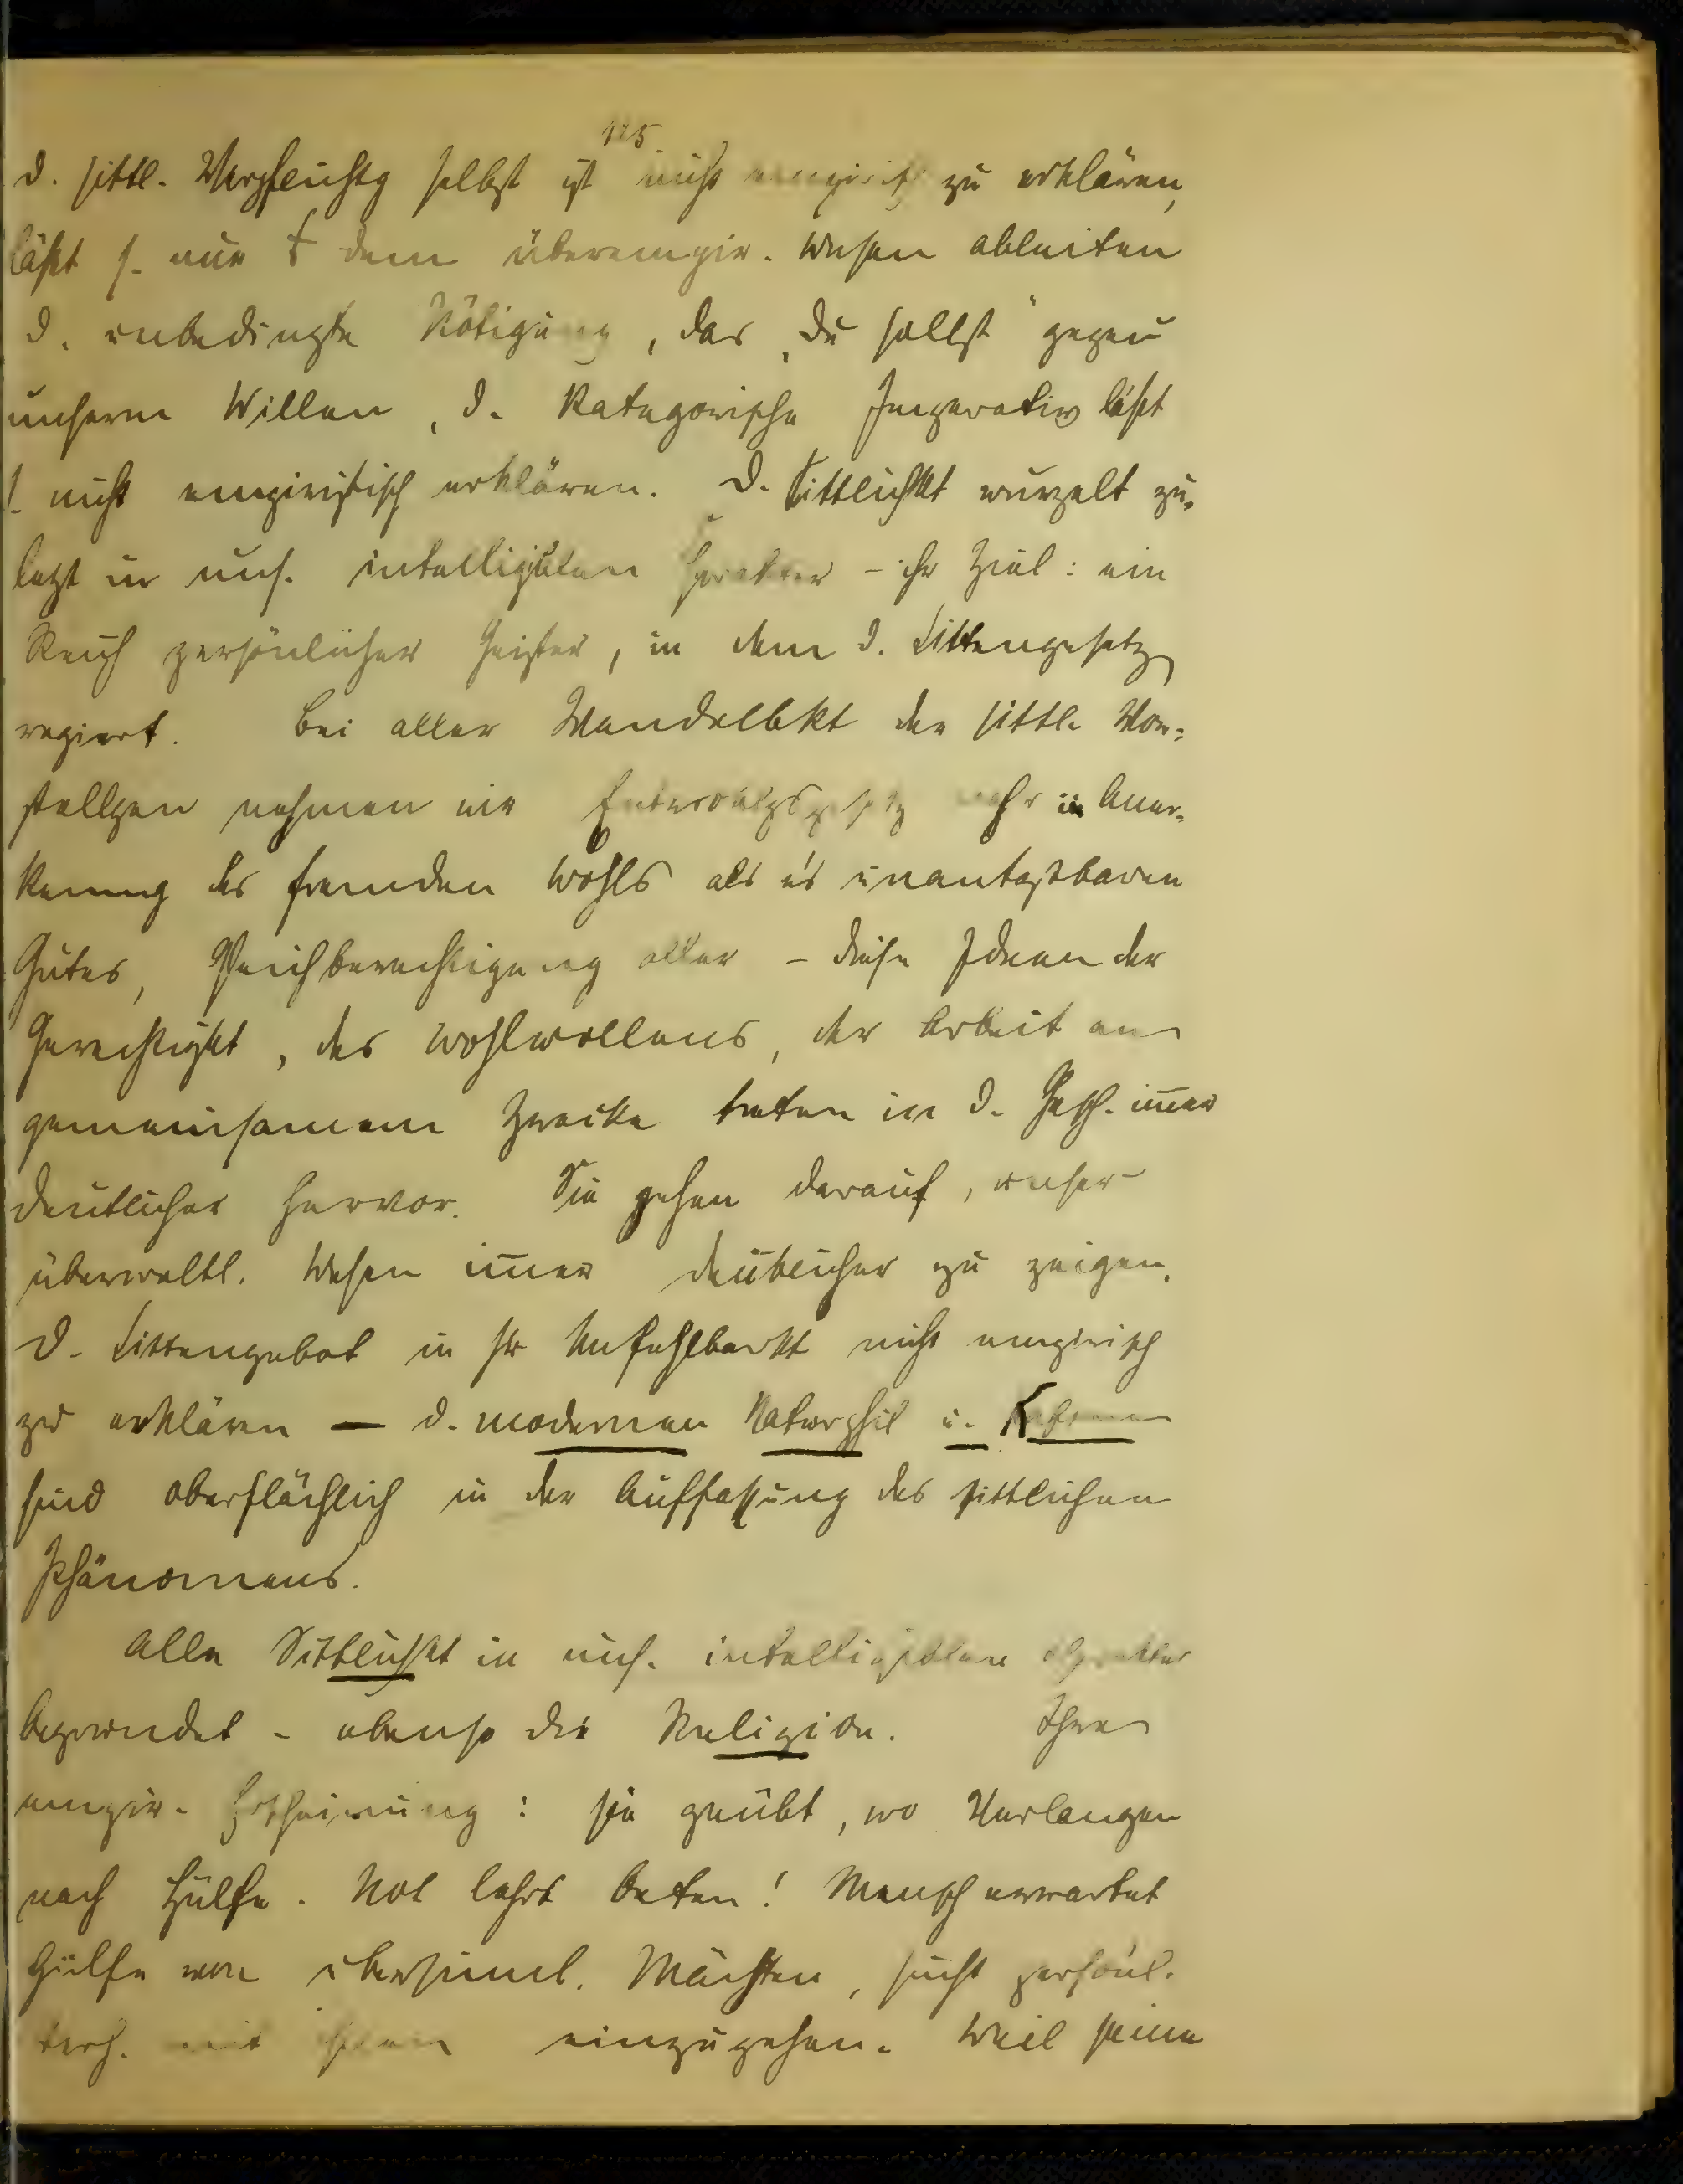 125
d. sittl. Verpflichtg selbst ist nicht empirisch zu erklären,
läßt s. nur dem überempir. Wesen ableiten
d. unbedingte Nötigung, das „du sollst" gegen
unsern Willen, d. kategorische Imperativ läßt
s. nicht empiristisch erklären. D. Sittlichkt wurzelt zu-
letzt in uns. intelligiblen – ihr Ziel: ein
Reich persönlicher Geister, in dem d. Sittengesetz
regiert. Bei aller Wandelbkt der sittl. Vor-
stellgen nehmen wir Entwicklgsgesetz wahr in Aner-
kenung des fremden Wohls als e's unantastbaren
Gutes, Gleichberechtigung aller – diese Ideen der
Gerechtigkt, des Wohlwollens, der Arbeit an
gemeinsamem Zwecke treten in d. Gesch. im̄er
deutlicher hervor. Sie gehen darauf, unser
überweltl. Wesen im̄er deutlicher zu zeigen.
D. Sittengebot in sr Unfehlbarkt nicht empirisch
zu erklären — d. modernen Naturphil u.
sind oberflächlich in der Auffassung des sittlichen
Phänomens.
Alle Sittlichkt in uns. intelligiblen Charakter
begründet – ebenso die Religion. Ihre
empir. Erscheinung: sie geübt, wo Verlangen
nach Hülfe. Not lehrt beten! Mensch erwartet
Hülfe von übersinnl. Mächten, sucht persönl.
mit ihnen einzugehen. Weil seine